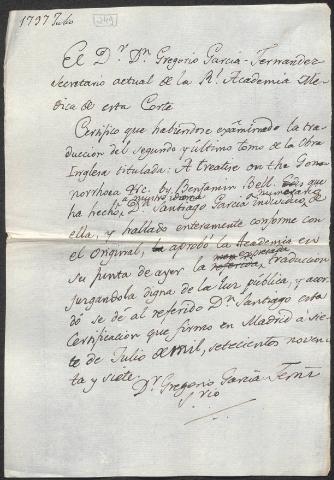 1797 Julio
249
El Dr. Dn. Gregorio Garcia-Fernandez
Secretario actual de la Rl. Academia Me-
dica de esta Corte
Certifico que habiendose examinado la tra-
duccion del segundo y último Tomo de la Obra
Inglesa titulada: A treatise on the Gono-
norrhoea &c. by Benjamin Bell. que
ha hecho D. Santiago Garcia individuo de
ella, y hallado enteramente conforme con
el original, aprobó la Academia en
su junta de ayer la referida traduccion
juzgandola digna de la luz pública, y acor-
dó se de al referido Dn. Santiago esta
Certificacion que firmo en Madrid a sie-
te de Julio de mil, setecientos noven-
ta y siete.
Dr. Gregorio Garcia Fernz
Srio